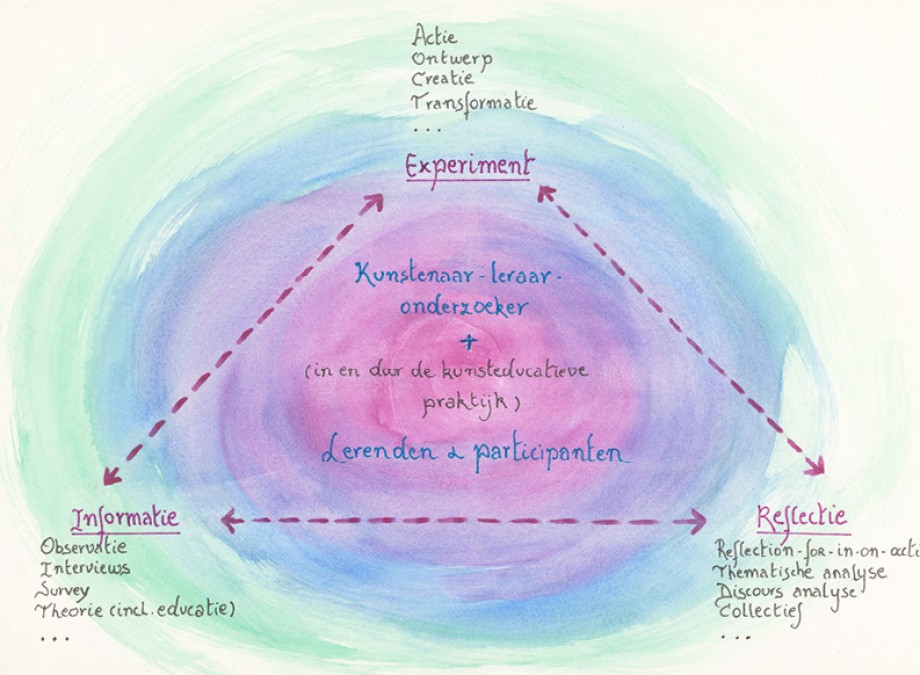 Actie
Ontwerp
Creatie
Transformatie
...
Experiment
Kunstenaar-leraar-
onderzoeker
+
(in en dur de kunsteducatieve
praktijk)
Lerenden & participanten
Informatie
Observatie
Interviews
Survey
Theorie (incl. educatie)
...
Reflectie
Reflection-for-in-on-acti
Thematische analyse
Discours analyse
Collectief
...